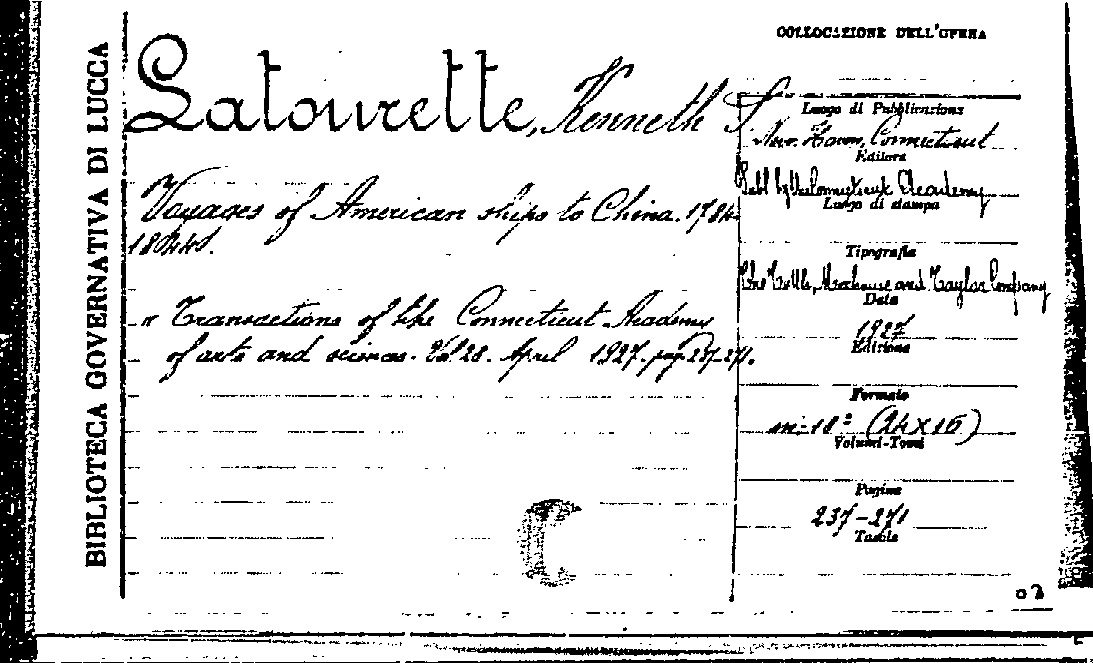 BIBLIOTECA GOVERNATIVA DI LUCCA
COLLOCAZIONE DELL'OPERA
Latourette, Kenneth S.
Voyages of American ships to China. 1784-
1844.
" Transactions of the Connecticut Academy
of arts and sciences. Vol 28. April 1927. pag. 237-271.
Luogo di Pubblicazione
New Haven, Connecticut
Editore
Publ by the Connecticut Academy
Luogo di stampa
Tipografia
The Tuttle, Morehouse and Taylor Company
Data
1927
Edizione
Formato
in-18º (24x16)
Volumi-Tomi
Pagine
237-271
Tavole